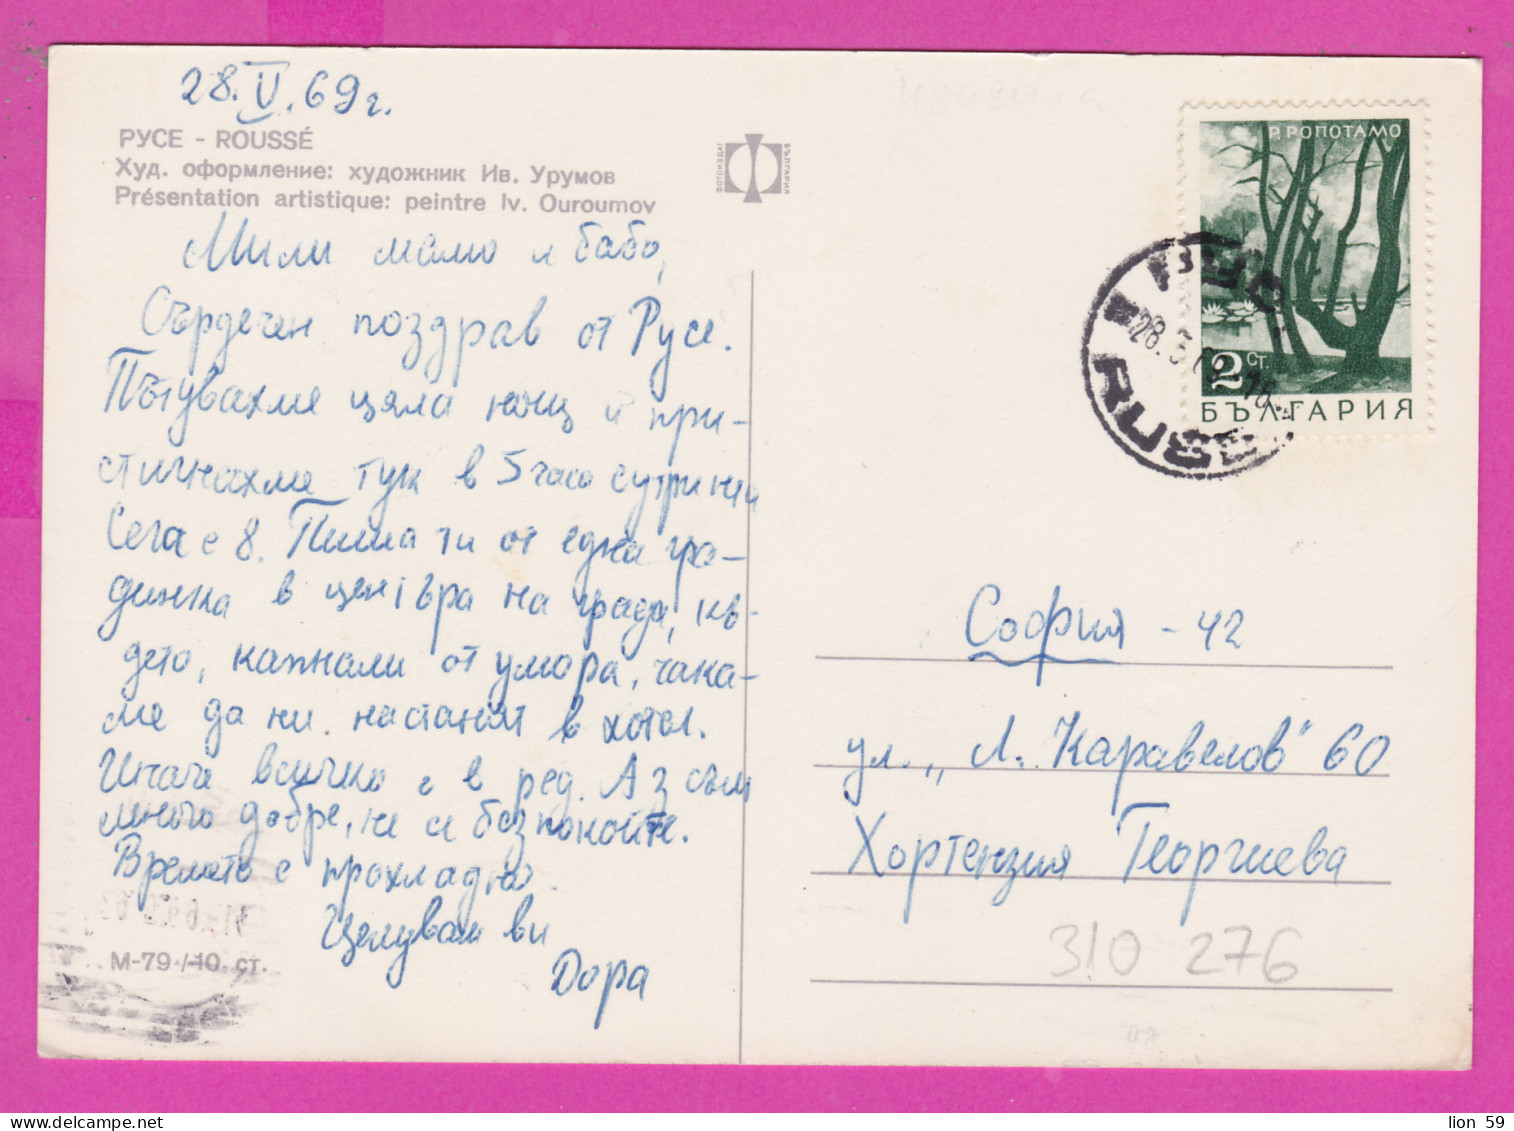 28.V.69г.
РУСЕ - ROUSSÉ
Худ. оформление: художник Ив. Урумов
Présentation artistique: peintre Iv. Ouroumov
ФОТОИЗДАТ
БЪЛГАРИЯ
Мили мамо и бабо,
Сърдечен поздрав от Русе.
Пътувахме цяла нощ и при-
стигнахме тук в 5 часо сутринта
Сега е 8. Пиша ти от една гра-
динка в центъра на града, къ-
дето, капнали от умора, чака-
ме да ни настанят в хотел.
Иначе всичко е в ред. Аз съм
много добре, не се безпокойте.
Времето е прохладно.
Целувам ви
Дора
М-79 /-10 ст.
Р. РОПОТАМО
2 СТ.
БЪЛГАРИЯ
РУСЕ
28.5.69-16
RUSE
София - 42
ул. „Л. Каравелов" 60
Хортензия Георгиева
310 276
lion 59